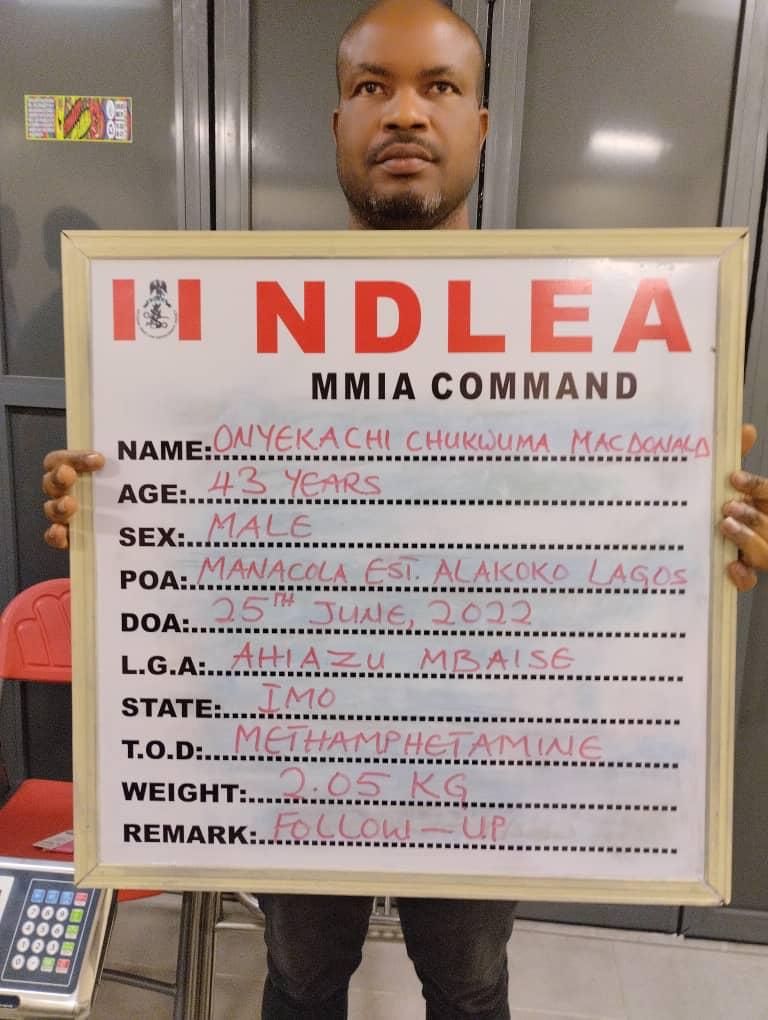 NDLEA
MMIA COMMAND
NAME: ONYEKACHI CHUKWUMA MACDONALD
AGE: 43 YEARS
SEX: MALE
POA: MANACOLA EST. ALAKOKO LAGOS
DOA: 25TH JUNE, 2022
L.G.A: AHIAZU MBAISE
STATE: IMO
T.O.D: METHAMPHETAMINE
WEIGHT: 2.05 KG
REMARK: FOLLOW-UP